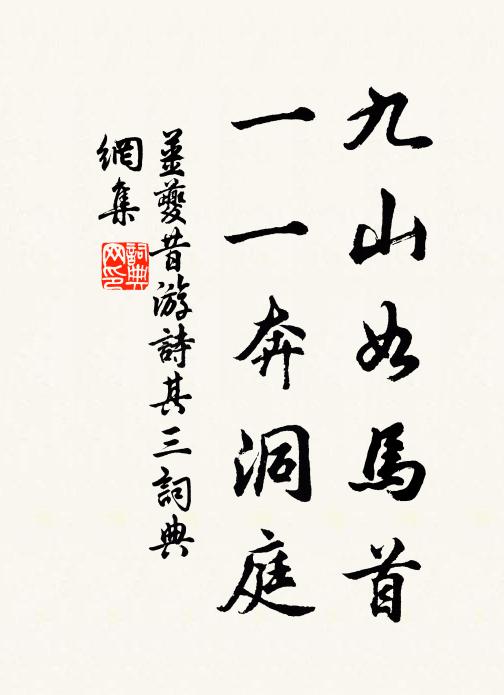 九山如馬首
一一奔洞庭
姜夔昔游詩其三詞典
網集
詞典
网印